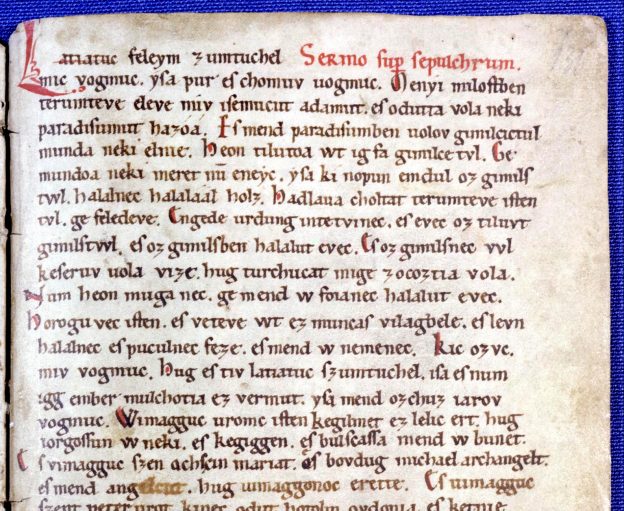 Latiatuc feleym zumtuchel Sermo sup sepulchrum.
mic vogmuc. ysa pur es chomuv uogmuc. Menyi milostben
terumteve eleve miv isemucut adamut. es odutta vola neki
paradisumut hazoa. Es mend paradisumben uolov gimilcictul
munda neki elnie. Heon tilutoa wt ig fa gimilce tvl. Ge
mundoa neki meret nū eneyc. ysa ki nopun emdul oz gimils
twl. halalnec halalaal holz. Hadlaua choltat terumteve isten
tvl. ge feledeve. Engede urdung intetvinec. es evec oz tiluvt
gimilstwl. es oz gimilsben halalut evec. Es oz gimilsnec vvl
keseruv uola vize. hug turchucat mige zocoztia vola.
Num heon muga nec. ge mend w foianec halalut evec.
Horogu vec isten. es veteve wt ez muncas vilagbele. es levn
halalnec es puculnec feze. es mend w nemenec. Kic ozvc.
miv vogmuc. Hug es tiv latiatuc szumtuchel. isa es num
igg ember mulchotia ez vermut. ysa mend ozchuz iarov
vogmuc. Wimagguc uromc isten kegilmet ez lelic ert. hug
iorgossun w neki. es kegiggen. es bulsassa mend w bunet.
Es vimagguc szen achscin mariat. es bovdug michael archangelt.
es mend angelcut. hug uimaggonoc erette. Es uimagguc
szent peter urot. kinec odut hotolm ovdonia. es ketnie